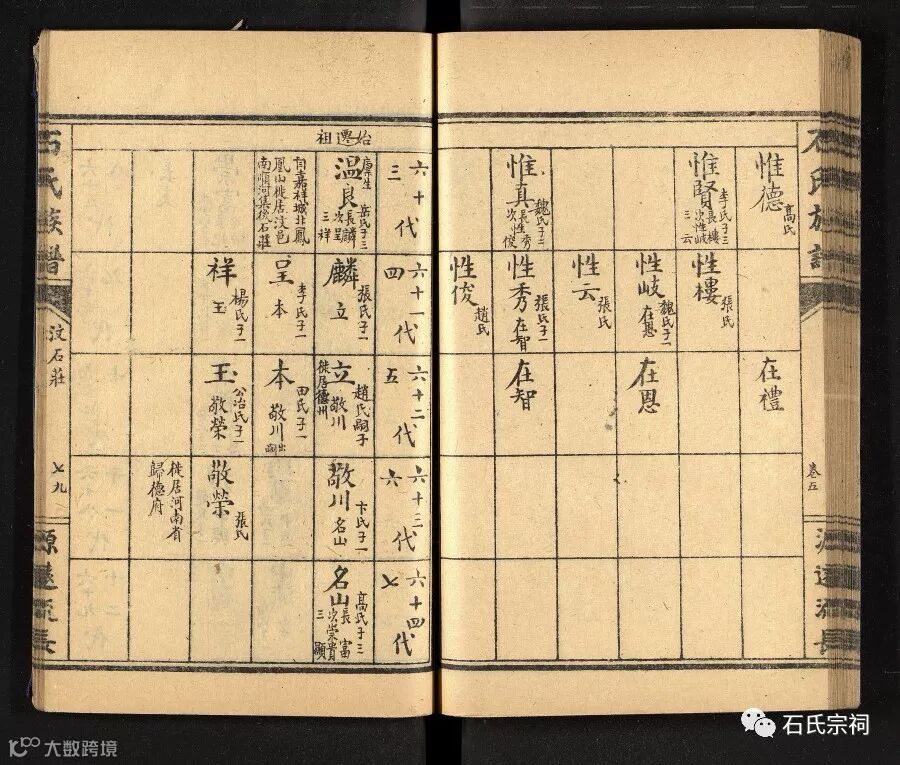 石氏族譜
卷五
源遠流長
惟德
高氏
惟賢
李氏子三
長樓
次性岐
三云
惟真
魏氏子二
長性秀
次性俊
性樓
張氏
性岐
魏氏子一
在恩
性云
張氏
性秀
張氏子一
在智
性俊
趙氏
在禮
在恩
在智
始遷祖
六十代
三
溫良
廩生
岳氏子三
長麟
次呈
三祥
自嘉祥城北鳳
凰山徙居汶邑
南順河集後石莊
六十一代
四
麟
張氏子一
立
呈
李氏子一
本
祥
楊氏子一
玉
六十二代
五
立
趙氏嗣子
敬川
徙居德州
本
田氏子一
敬川出嗣
玉
公冶氏子一
敬榮
六十三代
六
敬川
卞氏子一
名山
敬榮
張氏
徙居河南省
歸德府
六十四代
七
名山
高氏子三
長富
次崇貴
三顯
石氏族譜
汶石莊
七九
源遠流長
石氏宗祠
大数跨境